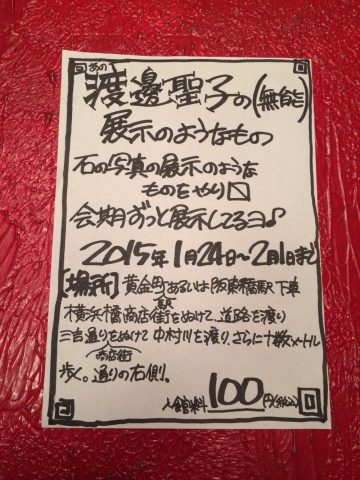 あの
渡邊聖子の(無能)
展示のようなもの
石の写真の展示のような
ものをやり〼
会期ずっと展示してるヨ♪
2015年1月24日〜2月1日まで
[場所]黄金町あるいは阪東橋駅下車
横浜橋商店街をぬけて、道路を渡り
三吉通り商店街をぬけて中村川を渡り、さらに十数メートル
歩く。通りの右側。
入館料100円(税込)